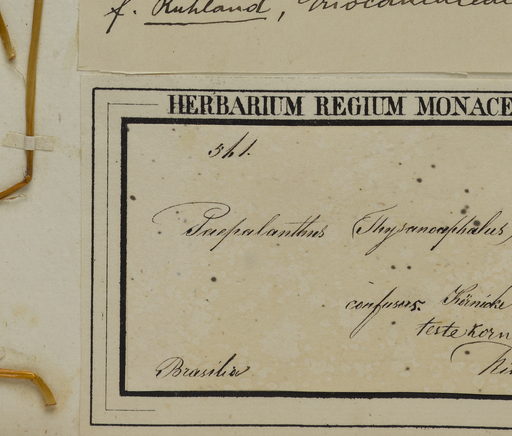 f. Ruhland,
HERBARIUM REGIUM MONACE
561.
Paepalanthus Thysanocephalus,
confusus. Körnicke
teste Korn
Brasilia